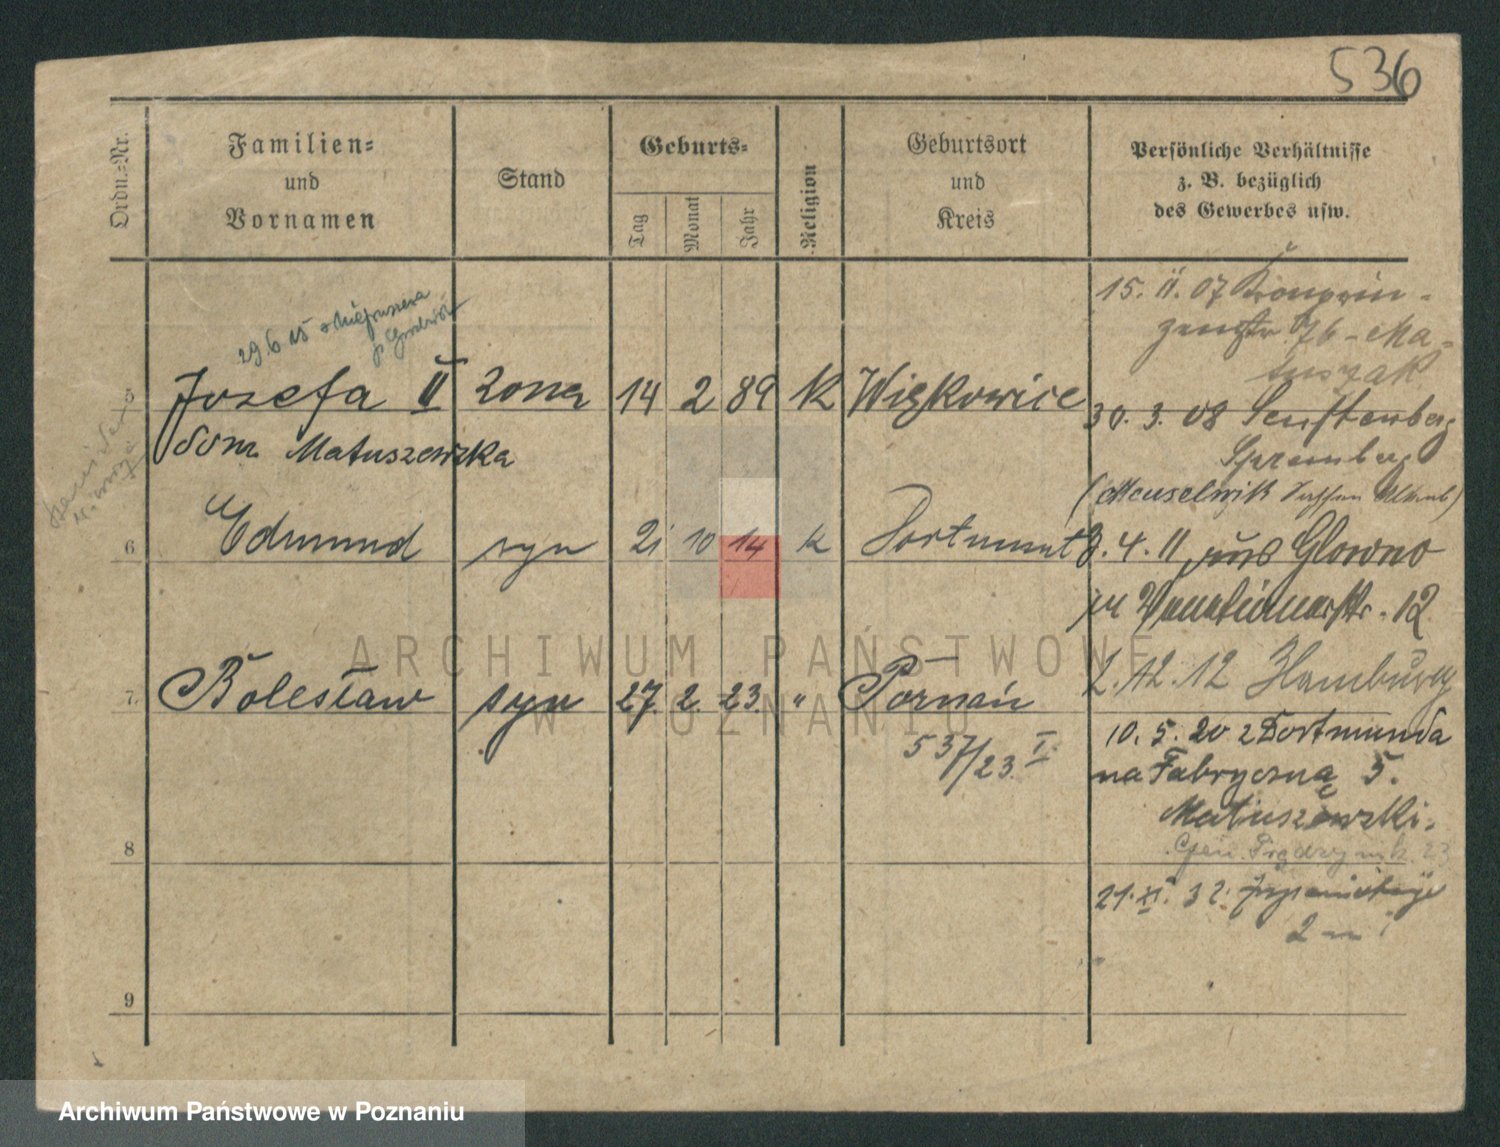 536
Ordn.-Nr.
Familien-
und
Vornamen
Stand
Geburts-
Tag
Monat
Jahr
Religion
Geburtsort
und
Kreis
Persönliche Verhältnisse
z. B. bezüglich
des Gewerbes usw.
15. II. 07
76 - Ma-
tuszak
29.6.15
5 Józefa II żona 14 2 89 K Więkowice
dom Matuszewska
30. 3. 08 Senftenberg
Spremberg
(Meuselwik
6 Edmund syn 21 10 14 k Dortmunt
3. 4. 11 aus Glowno
12
2. 12. 12 Hamburg
7. Bolesław syn 27. 2. 23. " Poznań
537/23. I.
10. 5. 20 z Dortmunda
na Fabryczną 5.
Matuszewski.
8
Gen. Prądzyńsk. 23
21. XI. 32.
9
ARCHIWUM PAŃSTWOWE
W POZNANIU
Archiwum Państwowe w Poznaniu